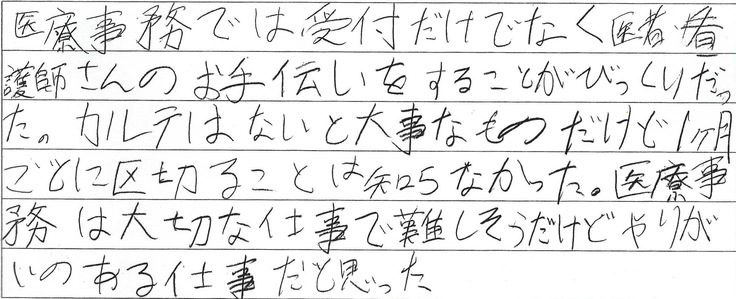 医療事務では受付だけでなく医者看
護師さんのお手伝いをすることがびっくりだっ
た。カルテはないと大事なものだけど1ヶ月
ごとに区切ることは知らなかった。医療事
務は大切な仕事で難しそうだけどやりが
いのある仕事だと思った